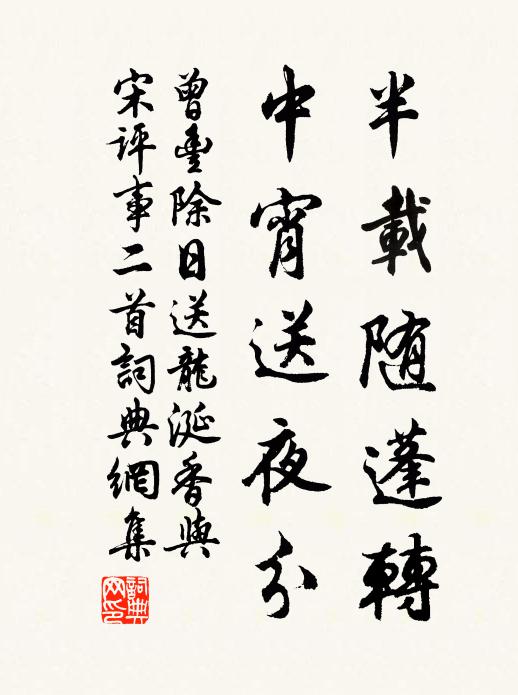 半載随蓬轉
中宵送夜分
曾豊除日送龍涎香與
宋評事二首詞典網集
詞典